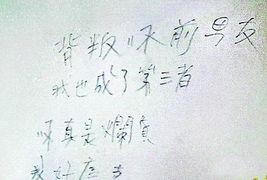 背叛你前男友
我也成了第三者
你真是爛貨
我好